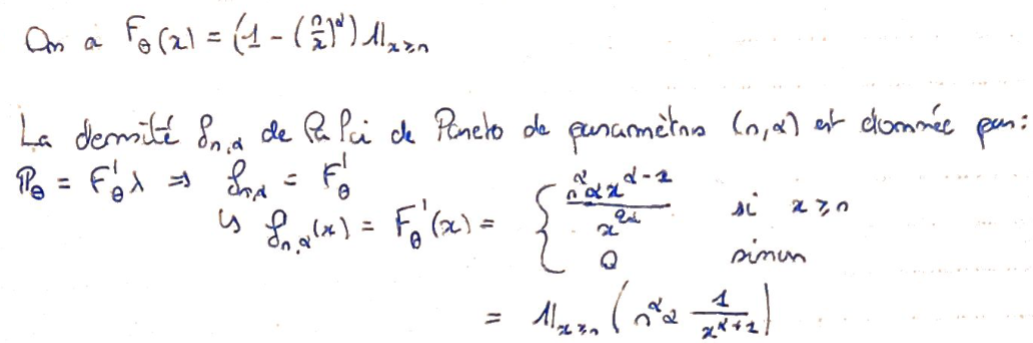 On a F_θ(x) = (1 - (r/x)^α) 1_{x≥r}
La densité f_{r,α} de la loi de Pareto de paramètres (r,α) est donnée par :
P_θ = F'_θ λ ⇒ f_{r,α} = F'_θ
↳ f_{r,α}(x) = F'_θ(x) = { r^α α x^{α-1} / x^{2α} si x ≥ r
0 sinon
= 1_{x≥r} (r^α α 1/x^{α+1})